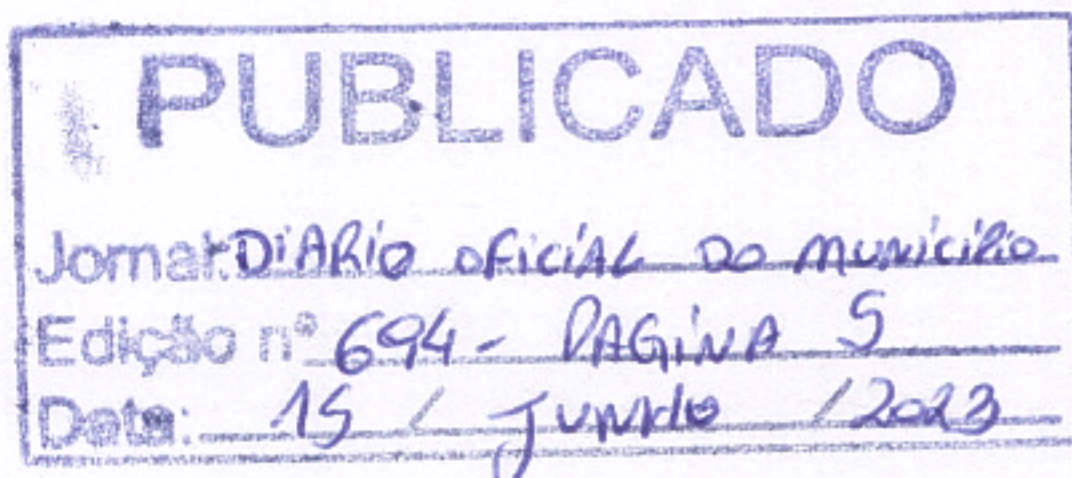 PUBLICADO
Jornal: DiARio oficiAL DO municiPio
Edição nº 694 - PAGiNA 5
Data: 15 / JUNHO / 2023